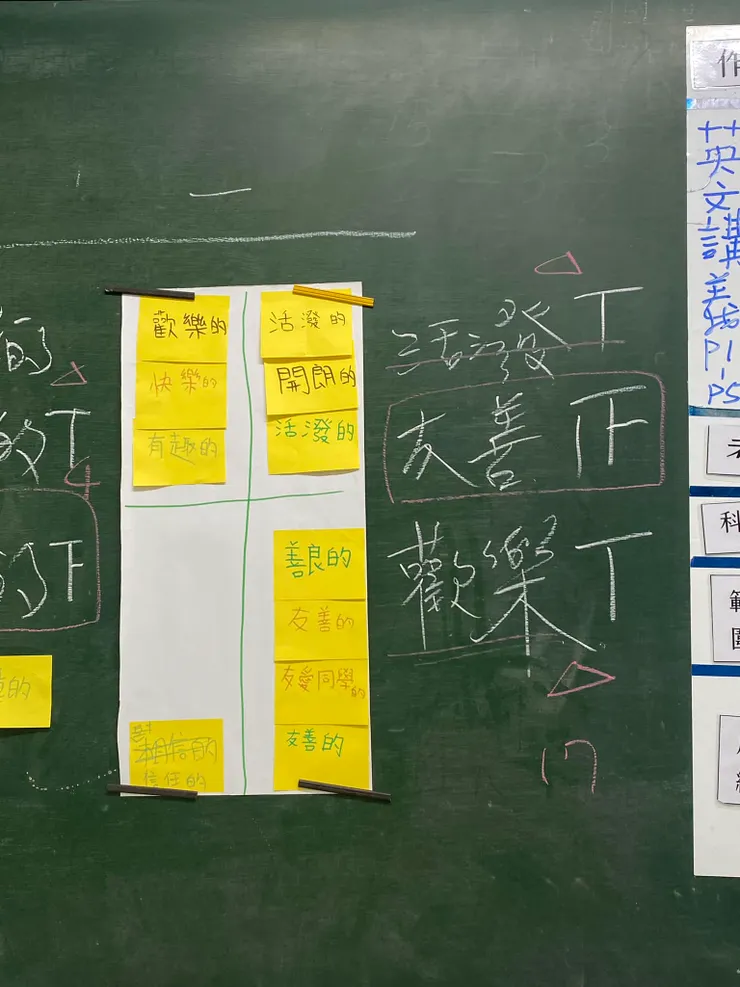 歡樂的
快樂的
有趣的
活潑的
開朗的
活潑的
善良的
友善的
友愛同學的
友善的
信任的
的
的T
的F
的
活潑T
友善正
歡樂T
作
英文講義P1-P5
科
範圍